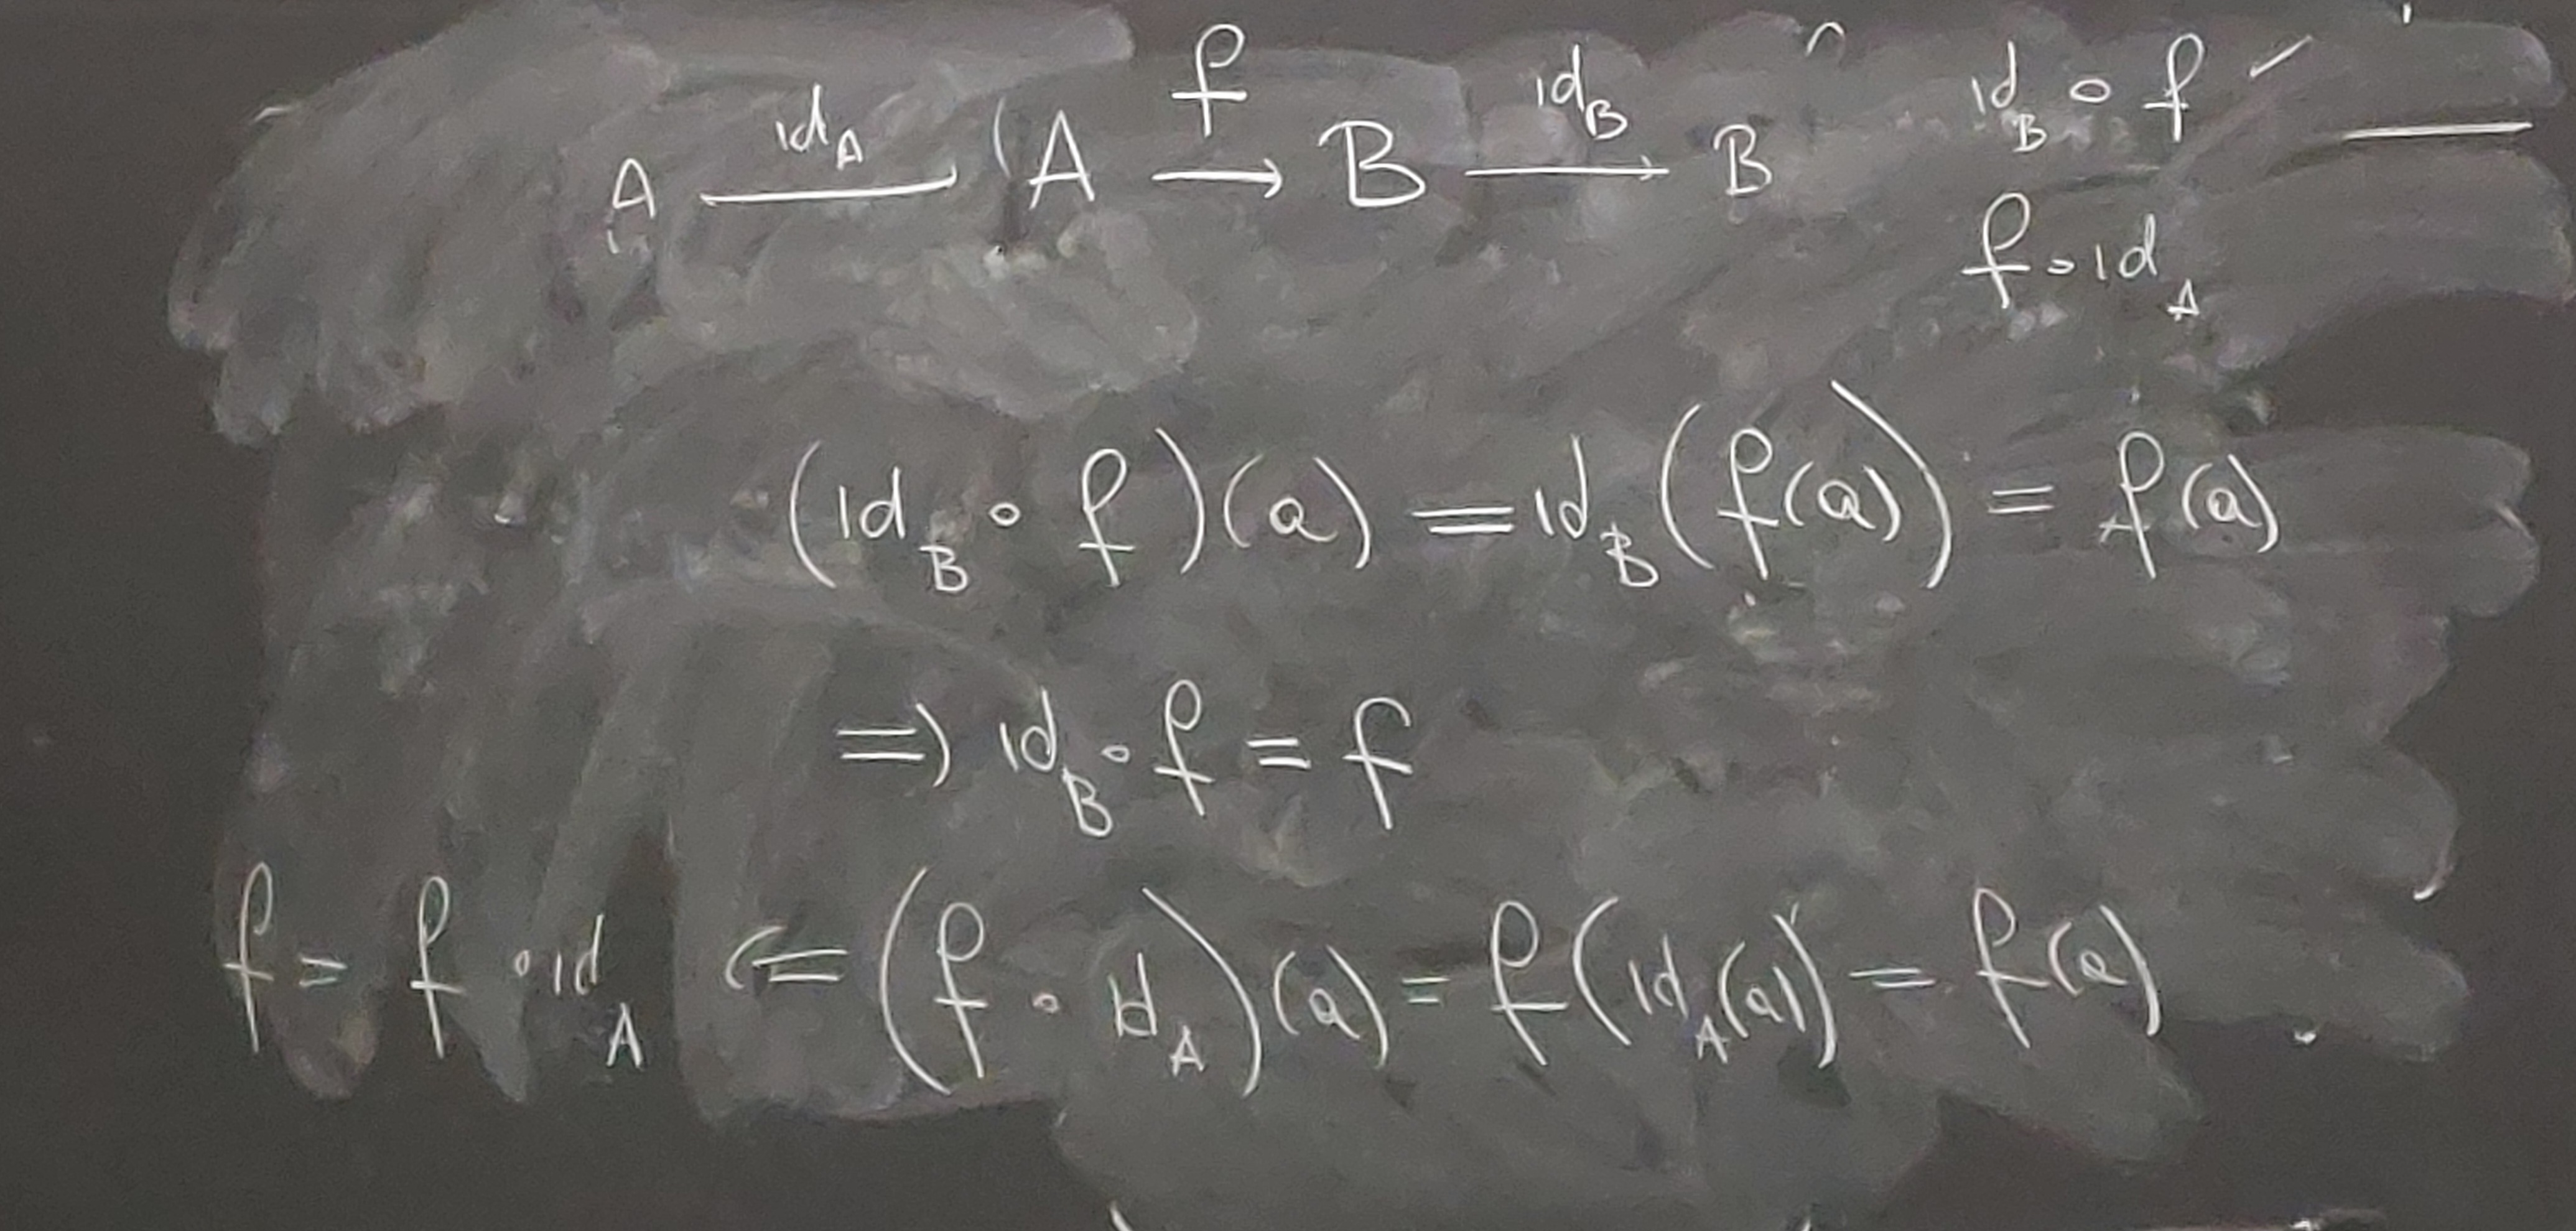 A —id_A→ A —f→ B —id_B→ B    id_B ∘ f
f ∘ id_A
(id_B ∘ f)(a) = id_B(f(a)) = f(a)
⇒ id_B ∘ f = f
f = f ∘ id_A ⇐ (f ∘ id_A)(a) = f(id_A(a)) = f(a)